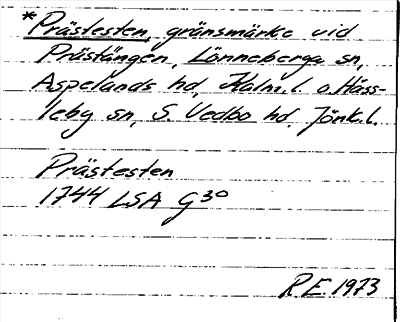 *Prästesten, gränsmärke vid
Prästängen, Lönneberga sn,
Aspelands hd, Kalm.l. o. Häss-
leby sn, S. Vedbo hd. Jönk.l.
Prästesten
1744 LSA G30
R.E. 1973